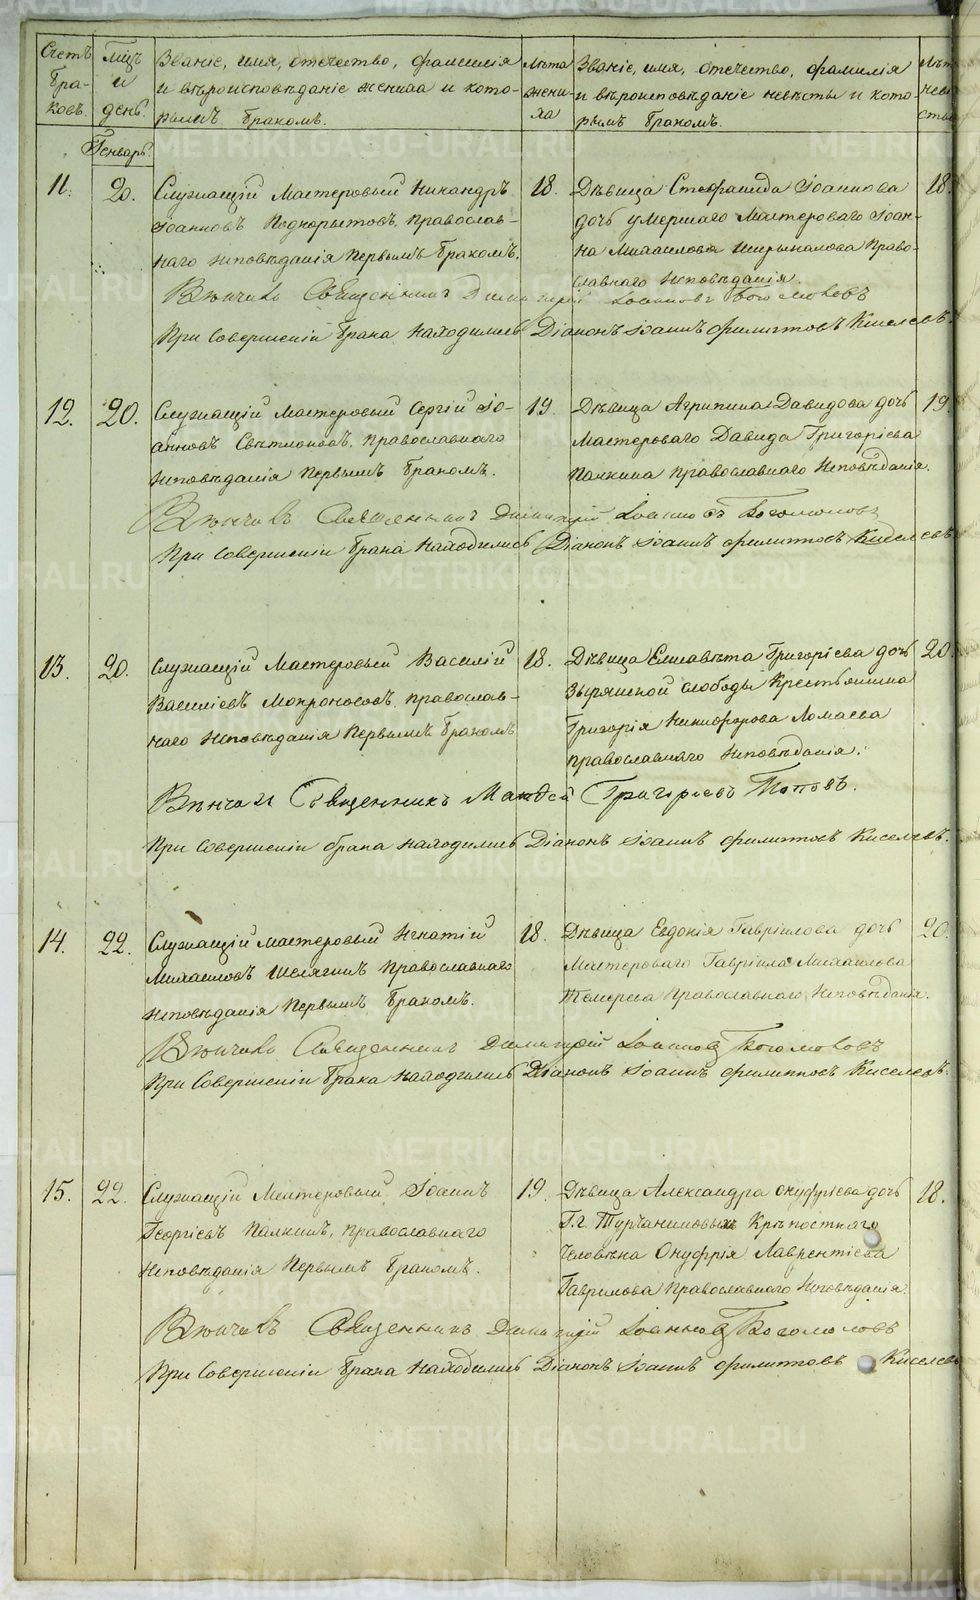 Счетъ бра- ковъ.
Мѣцъ и день.
Званіе, имя, отечество, фамилія и вѣроисповѣданіе жениха и кото- рымъ бракомъ.
Лѣта жени- ха
Званіе, имя, отечество, фамилія и вѣроисповѣданіе невѣсты и кото- рымъ бракомъ.
Лѣт неве сты
Генварь.
11. 20. Служащій Мастеровый Никандръ 18. Дѣвица Стефанида Іоаннова 18.
Іоанновъ Поднорытовъ, Православ- дочь умершаго Мастероваго Іоан-
наго Исповѣданія Первымъ Бракомъ. на Михаилова Ширыкалова Право-
славнаго Исповѣданія.
Вѣнчалъ Священникъ Димитрій Іоанновъ Богомоловъ
При Совершеніи Брака Находились Діаконъ Іоаннъ Филиповъ Киселевъ.
12. 20. Служащій Мастеровый Сергій Іо- 19. Дѣвица Агрипина Давидова дочь 19.
анновъ Свѣтлоновъ, Православнаго Мастероваго Давида Григоріева
Исповѣданія Первымъ Бракомъ. Палкина Православнаго Исповѣданія.
Вѣнчалъ Священникъ Димитрій Іоанновъ Богомоловъ
При Совершеніи Брака Находились Діаконъ Іоаннъ Филиповъ Киселевъ
13. 20. Служащій Мастеровый Василій 18. Дѣвица Елисавѣта Григоріева дочь 20.
Василіевъ Мокроносовъ, Православ- Зырянской слободы Крестьянина
наго Исповѣданія Первымъ Бракомъ Григорія Никифорова Ломаева
Православнаго Исповѣданія.
Вѣнчалъ Священникъ Матѳей Григорьевъ Поповъ.
При Совершеніи брака находились Діаконъ Іоаннъ Филиповъ Киселевъ.
14. 22. Служащій Мастеровый Игнатій 18. Дѣвица Евдокія Гавріилова дочь 20.
Михаиловъ Шелягинъ Православнаго Мастероваго Гавріила Михаилова
Исповѣданія Первымъ Бракомъ. Православнаго Исповѣданія.
Вѣнчалъ Священникъ Димитрій Іоанновъ Богомоловъ
При Совершеніи Брака Находились Діаконъ Іоаннъ Филиповъ Киселевъ.
15. 22. Служащій Мастеровый Іоаннъ 19 Дѣвица Александра Онуфріева дочь 18.
Георгіевъ Палкинъ, Православнаго Г.г. Турчаниновыхъ Крѣпостнаго
Исповѣданія Первымъ Бракомъ. Человѣка Онуфрія Лаврентіева
Гаврилова Православнаго Исповѣданія.
Вѣнчалъ Священникъ Димитрій Іоанновъ Богомоловъ
При Совершеніи Брака Находились Діаконъ Іоаннъ Филиповъ Киселевъ
METRIKI.GASO-URAL.RU